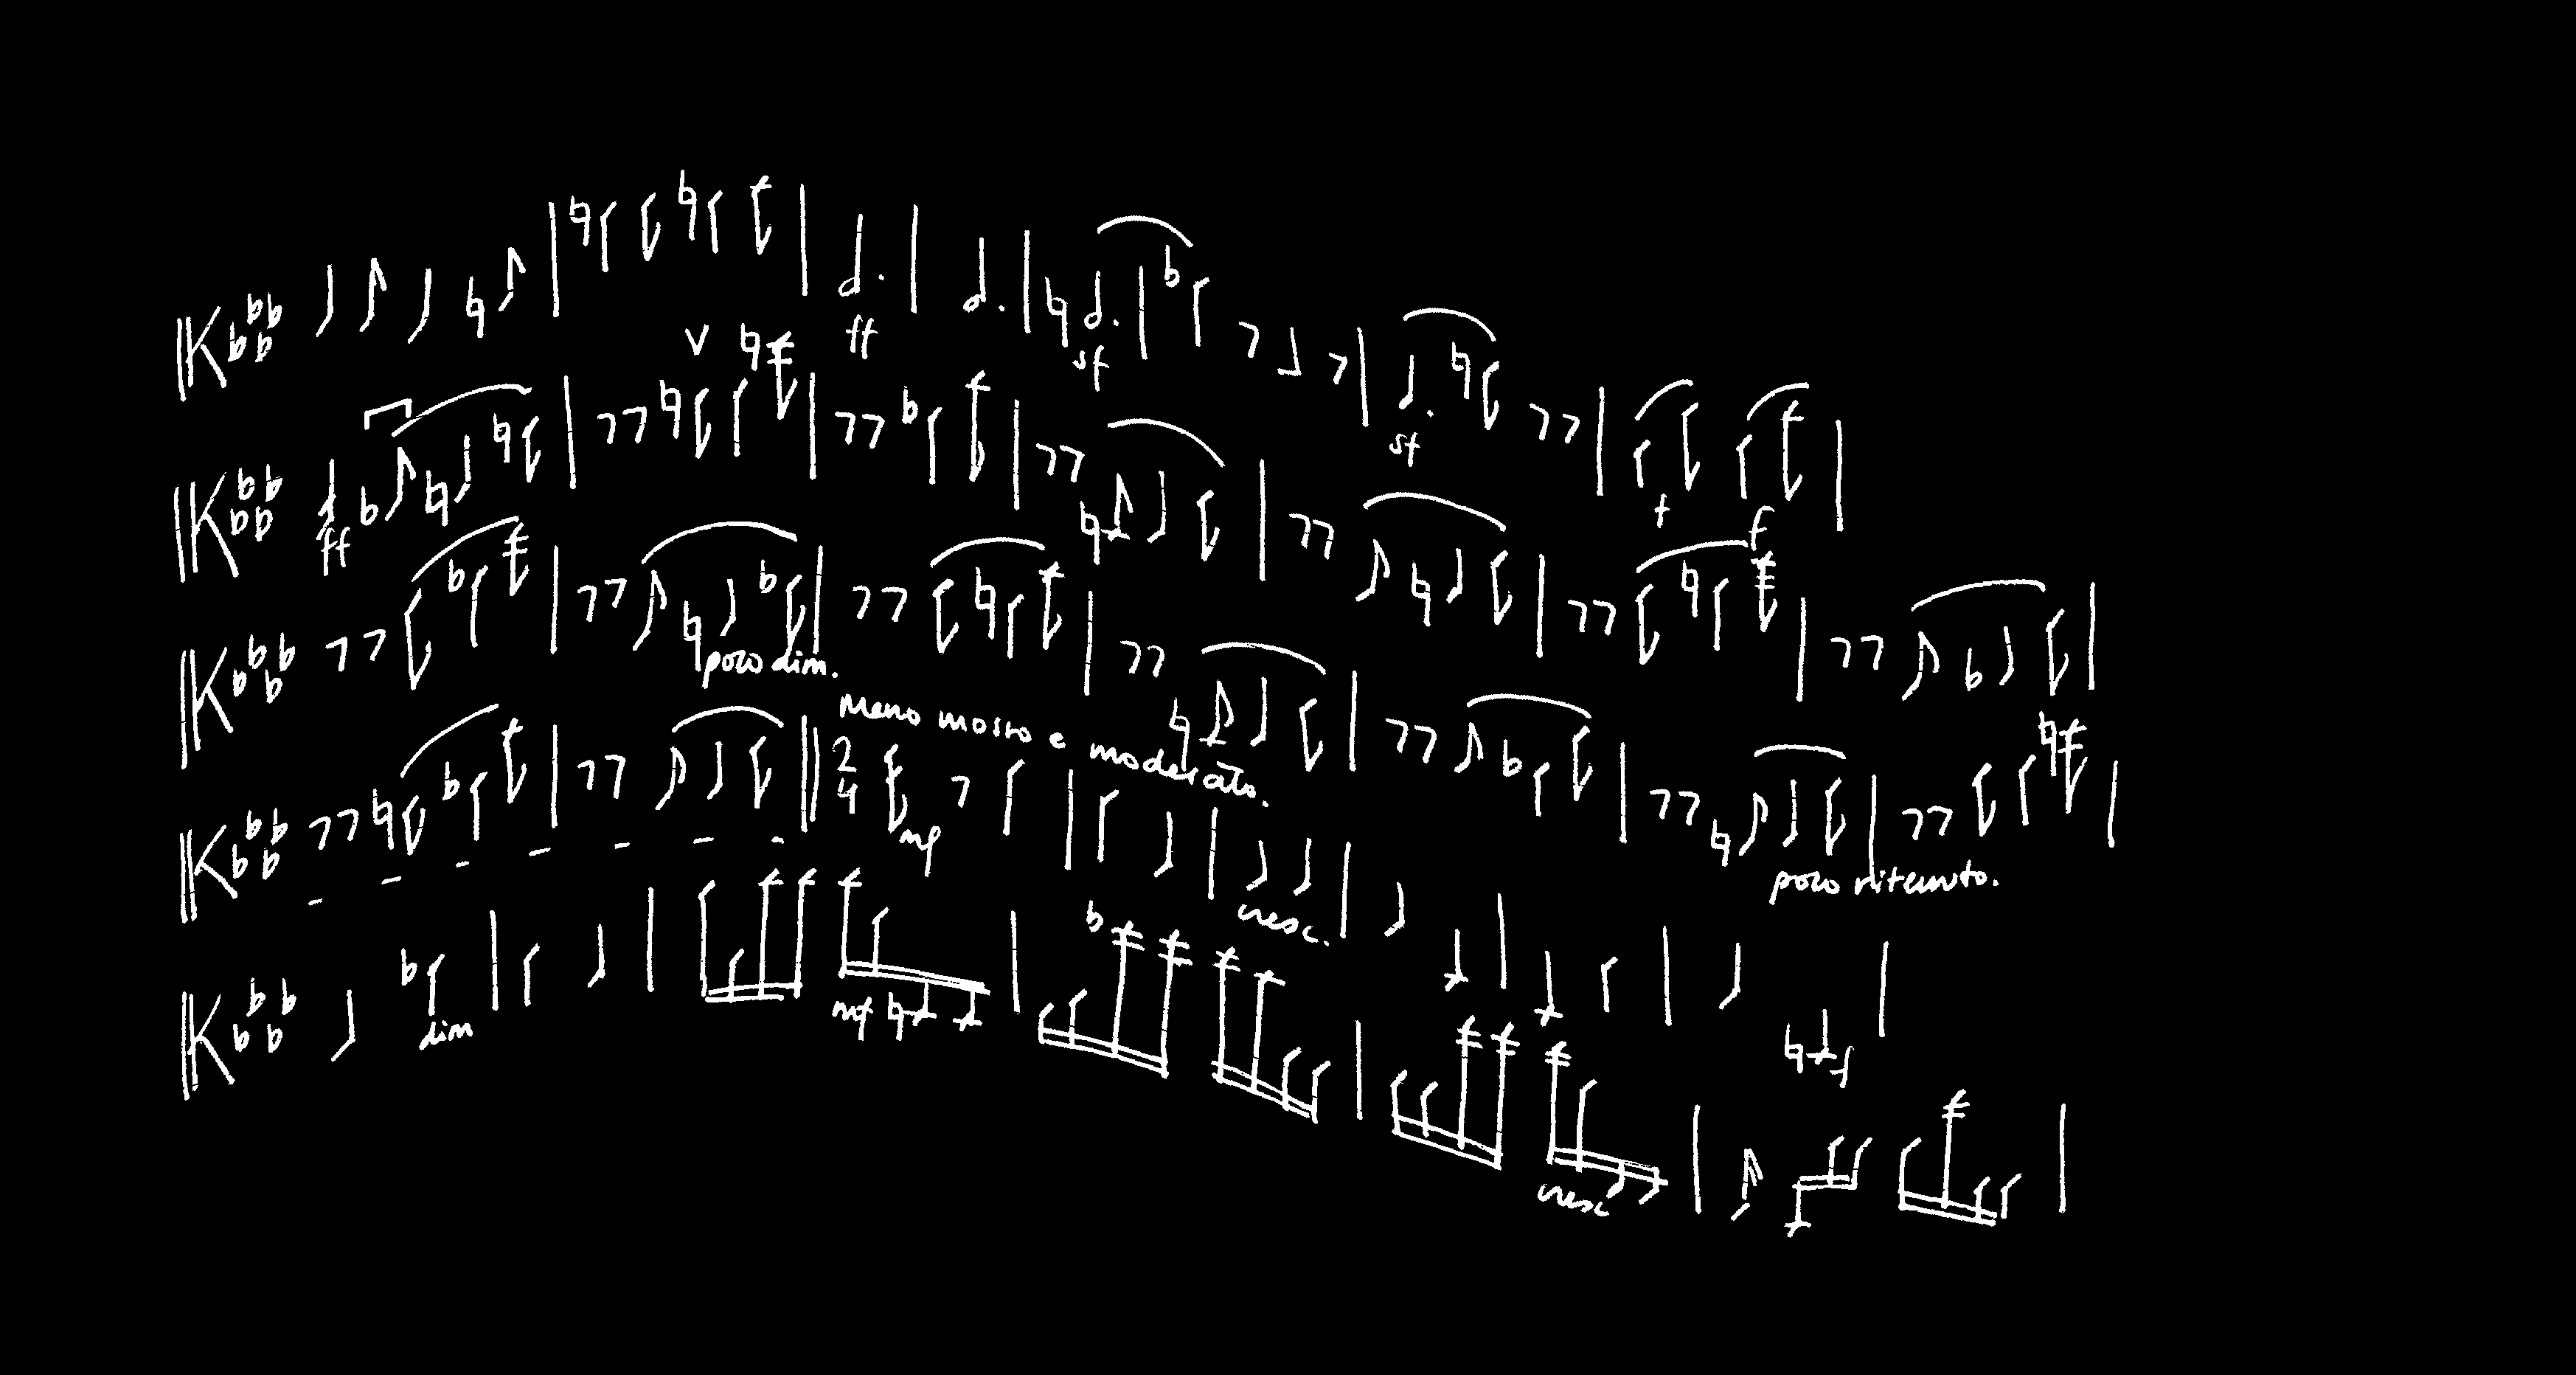 ff
sf
sf
f
f
V
ff
poco dim.
Meno mosso e moderato.
2
4
mf
cresc.
poco ritenuto.
dim
mf
cresc
f